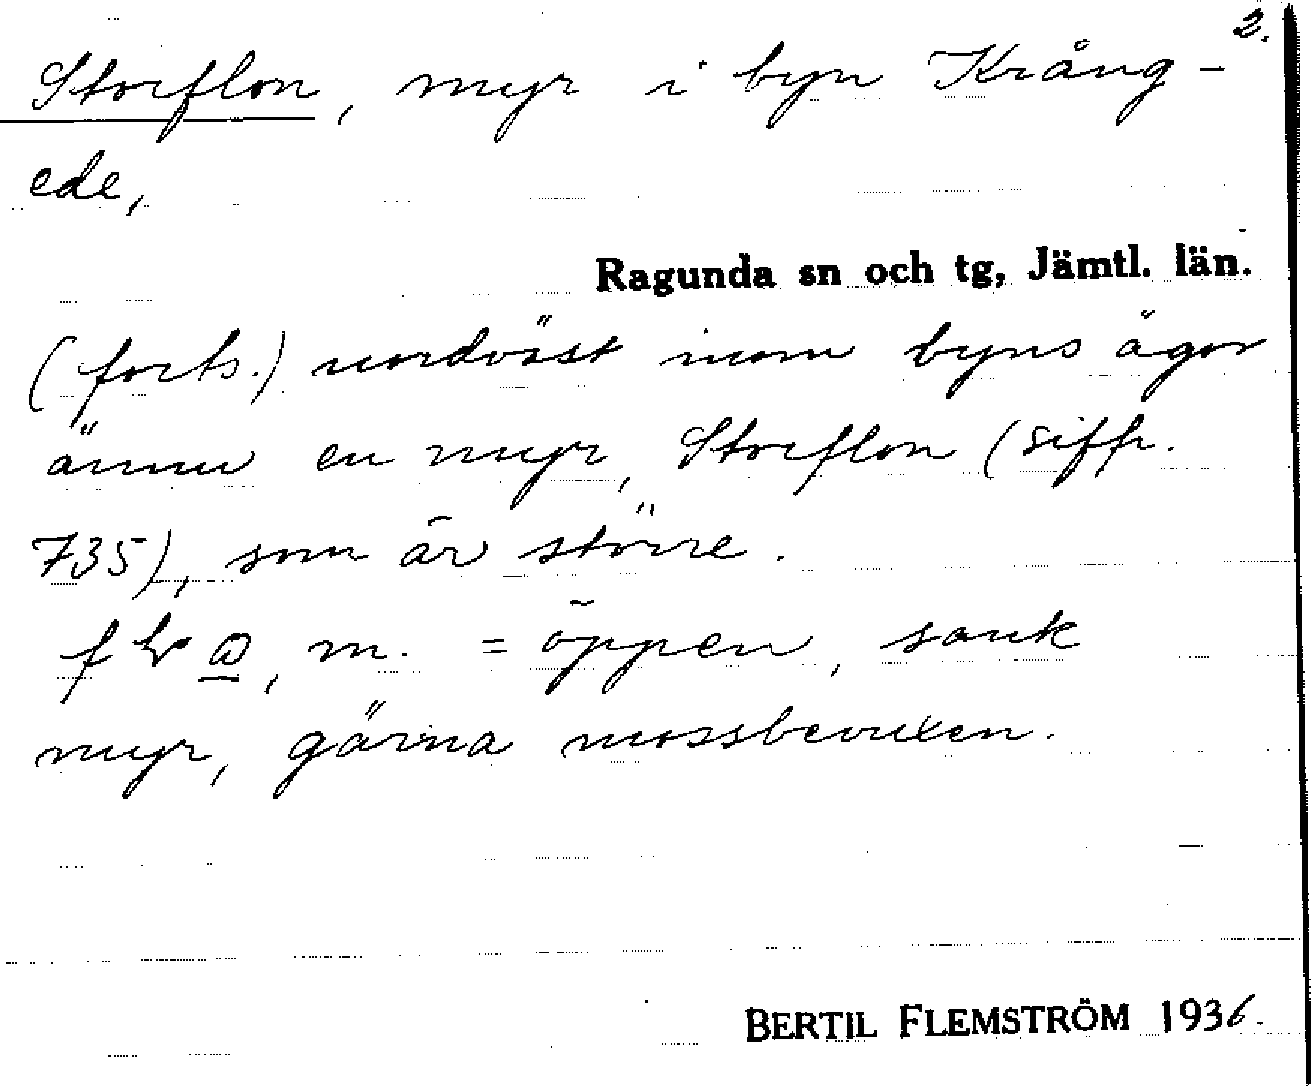 2.
Storflon, myr i byn Krång-
ede,
Ragunda sn och tg, Jämtl. län.
(forts.) nordväst inom byns ägor
ännu en myr, Storflon (siffr.
735), som är större.
m. = öppen, sank
myr, gärna mossbevuxen.
BERTIL FLEMSTRÖM 1936.